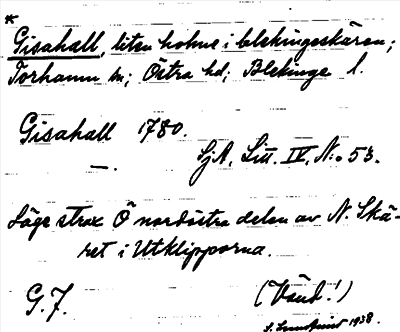 *
Gisahall, liten holme i blekingeskären;
Torhamn sn; Östra hd; Blekinge l.
Gisahall 1780.
—. SjA, Litt. IV, N:o 53.
Läge strax Ö nordöstra delen av N. Skä-
ret i Utklipporna.
G.F. (Vänd!)
1938.